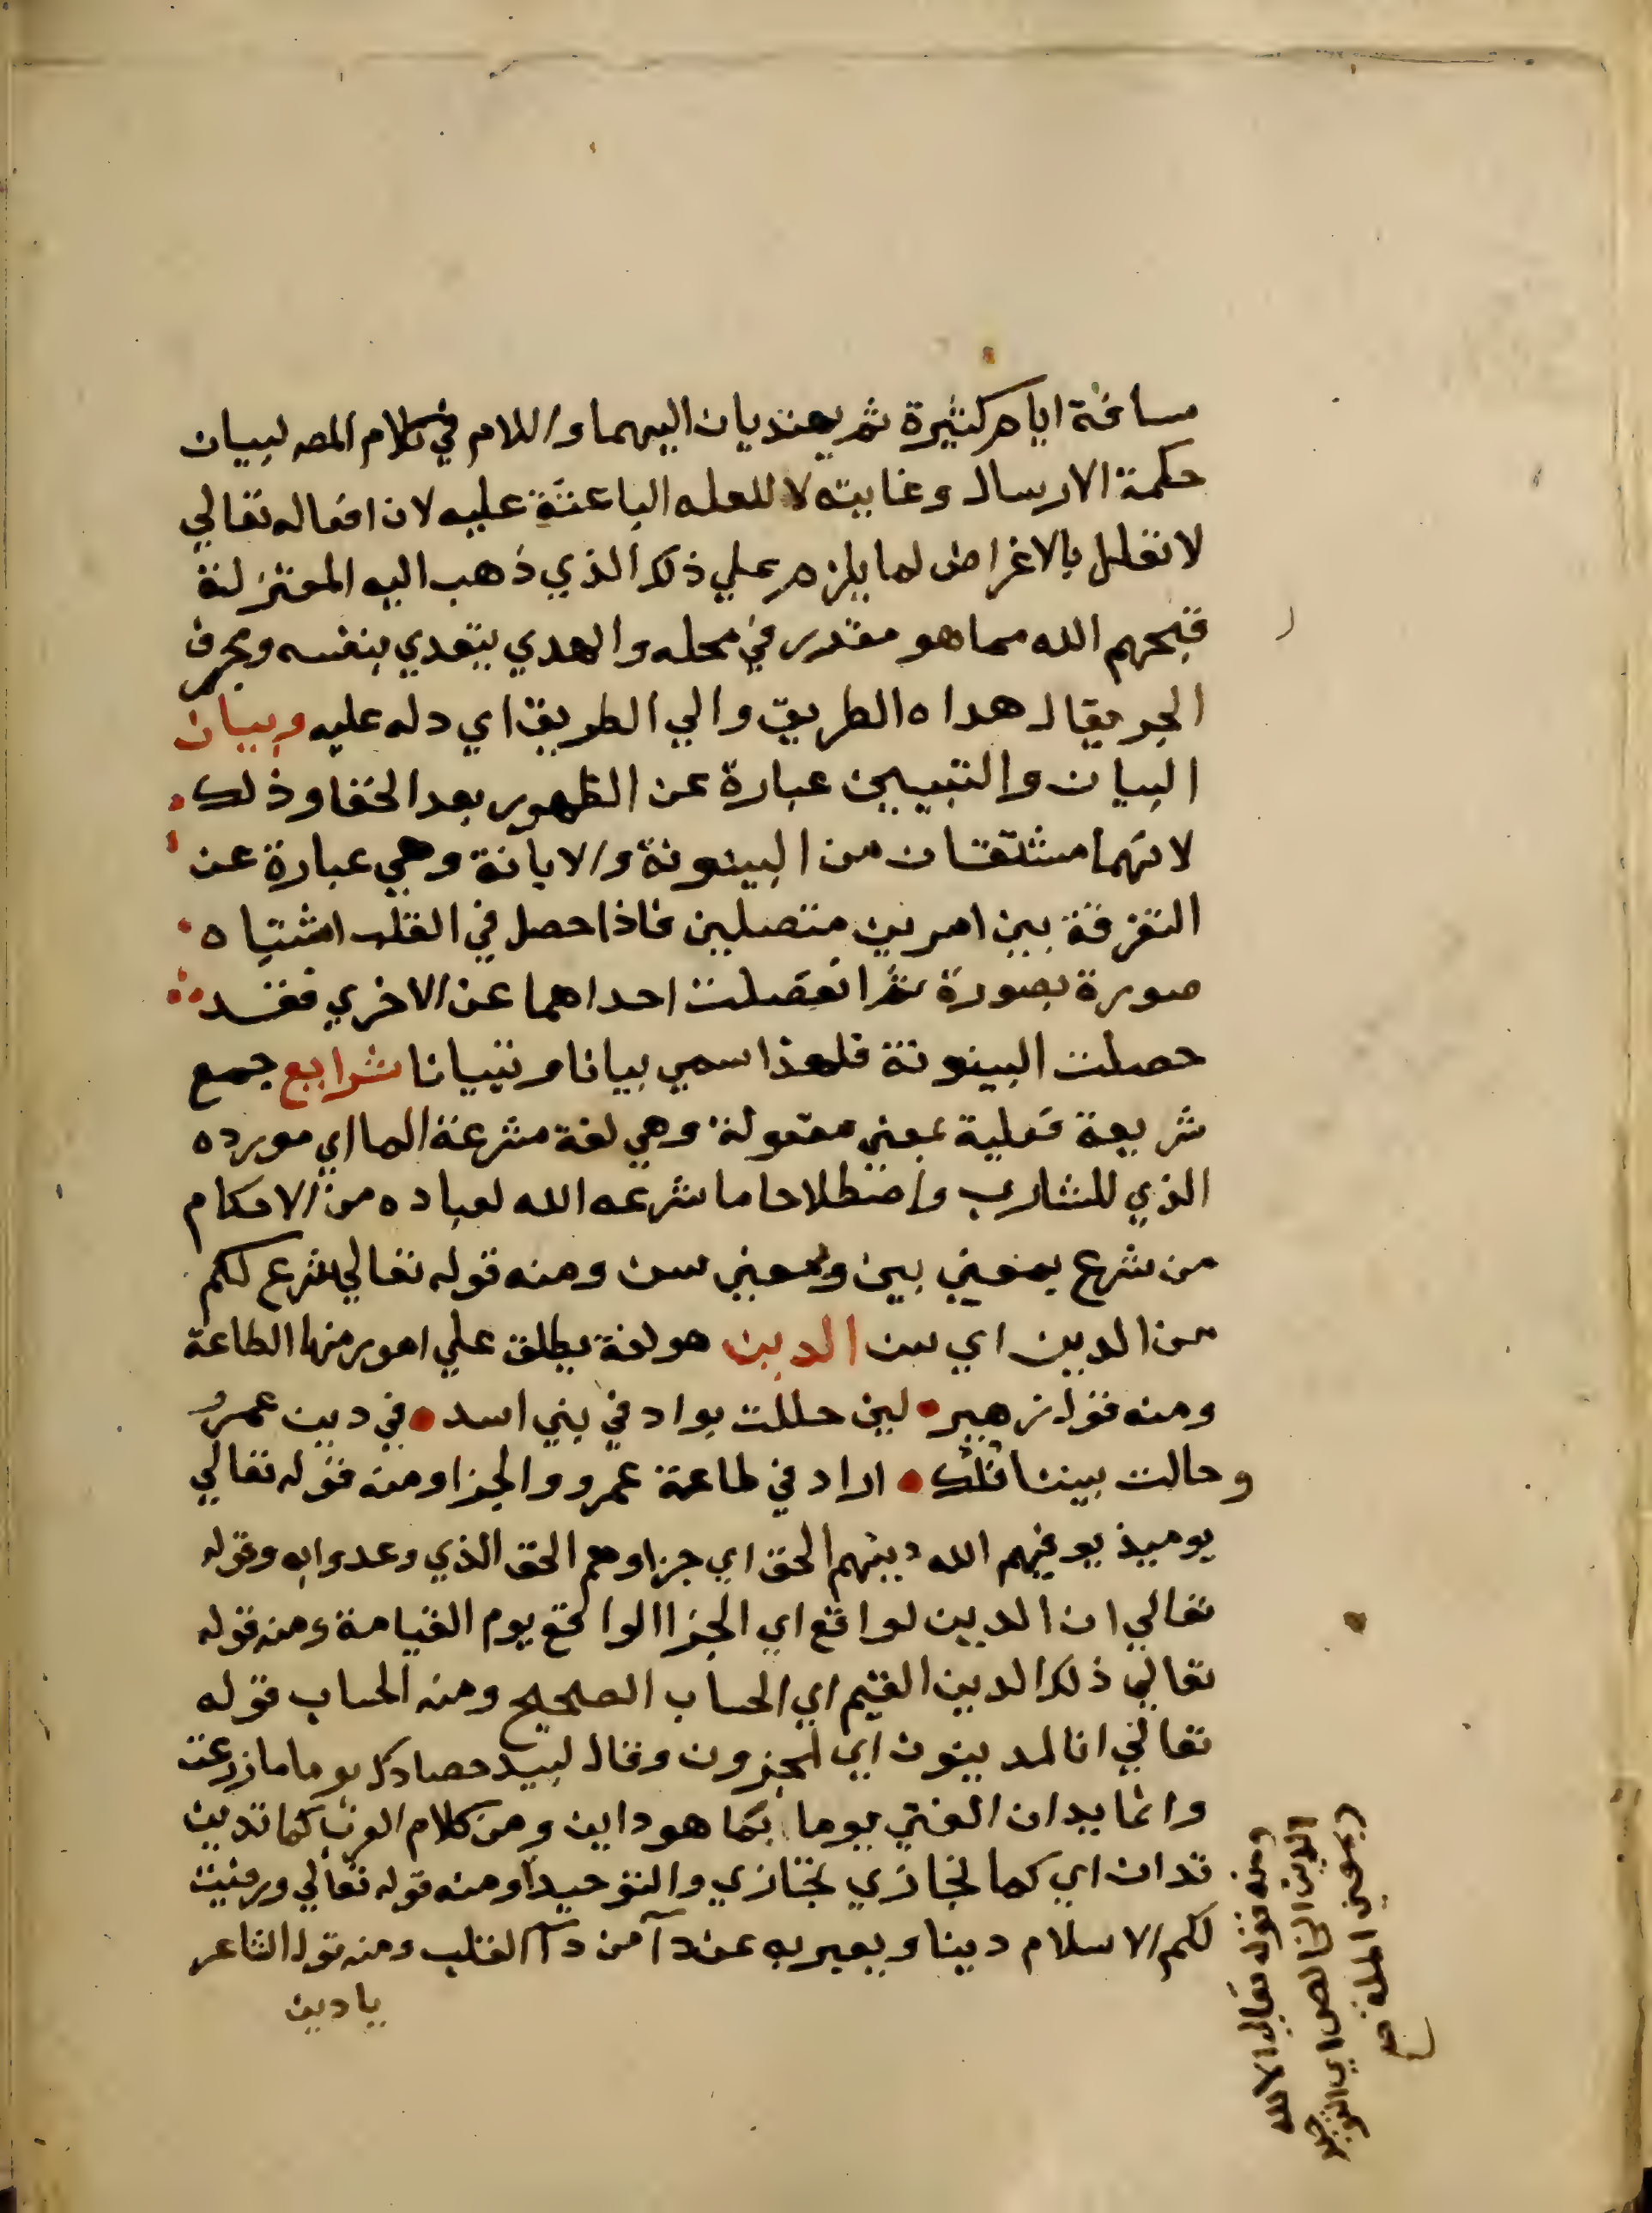 مسافة ايام كثيرة ثم يهتديان اليهما واللام في كلام المص لبيان
حكمة الارسال وغايته لا للعله الباعثة عليه لان افعاله تعالي
لا تعلل بالاغراض لما يلزم علي ذلك الذي ذهب اليه المعتزلة
قبحهم الله مما هو مقدر في محله والهدي يتعدي بنفسه وبحرف
الجر يقال هداه الطريق والي الطريق اي دله عليه وبيان
البيان والتبيين عبارة عن الظهور بعد الخفا وذلك
لانهما مشتقان من البينونة والابانة وهي عبارة عن
التفرقة بين امرين متصلين فاذا حصل في القلب اشتباه
صورة بصورة ثم انفصلت احداهما عن الاخري فقد
حصلت البينونة فلهذا سمي بيانا وتبيانا شرايع جمع
شريعة فعلية بمعني مفعولة وهي لغة مشرعة الما اي مورده
الذي للشارب واصطلاحا ما شرعه الله لعباده من الاحكام
من شرع بمعني بين وبمعني سن ومنه قوله تعالي شرع لكم
من الدين اي سن الدين هو لغة يطلق علي امور منها الطاعة
ومنه قول زهير لين حللت بواد في بني اسد في دين عمرو
وحالت بيننا فدك اراد في طاعة عمرو والجزا ومنه قوله تعالي
يوميذ يوفيهم الله دينهم الحق اي جزاوهم الحق الذي وعدوا به وقوله
تعالي ان الدين لواقع اي الجزا الواقع يوم القيامة ومنه قوله
تعالي ذلك الدين القيم اي الحساب الصحيح ومنه الحساب قوله
تعالي انا لمدينون اي لمجزون وقال لبيد حصادك يوما ما زرعت
وانما يدان الفتي يوما بكما هو داين ومن كلام العرب كما تدين
تدان اي كما تجازي تجازي والتوحيد ومنه قوله تعالي ورضيت
لكم الاسلام دينا ويعبر به عن دآ من دآ القلب ومنه قول الشاعر
يا دين
ومنه قوله تعالي الا لله
الدين الخالص اي التوحيد
وبمعني الملة صح